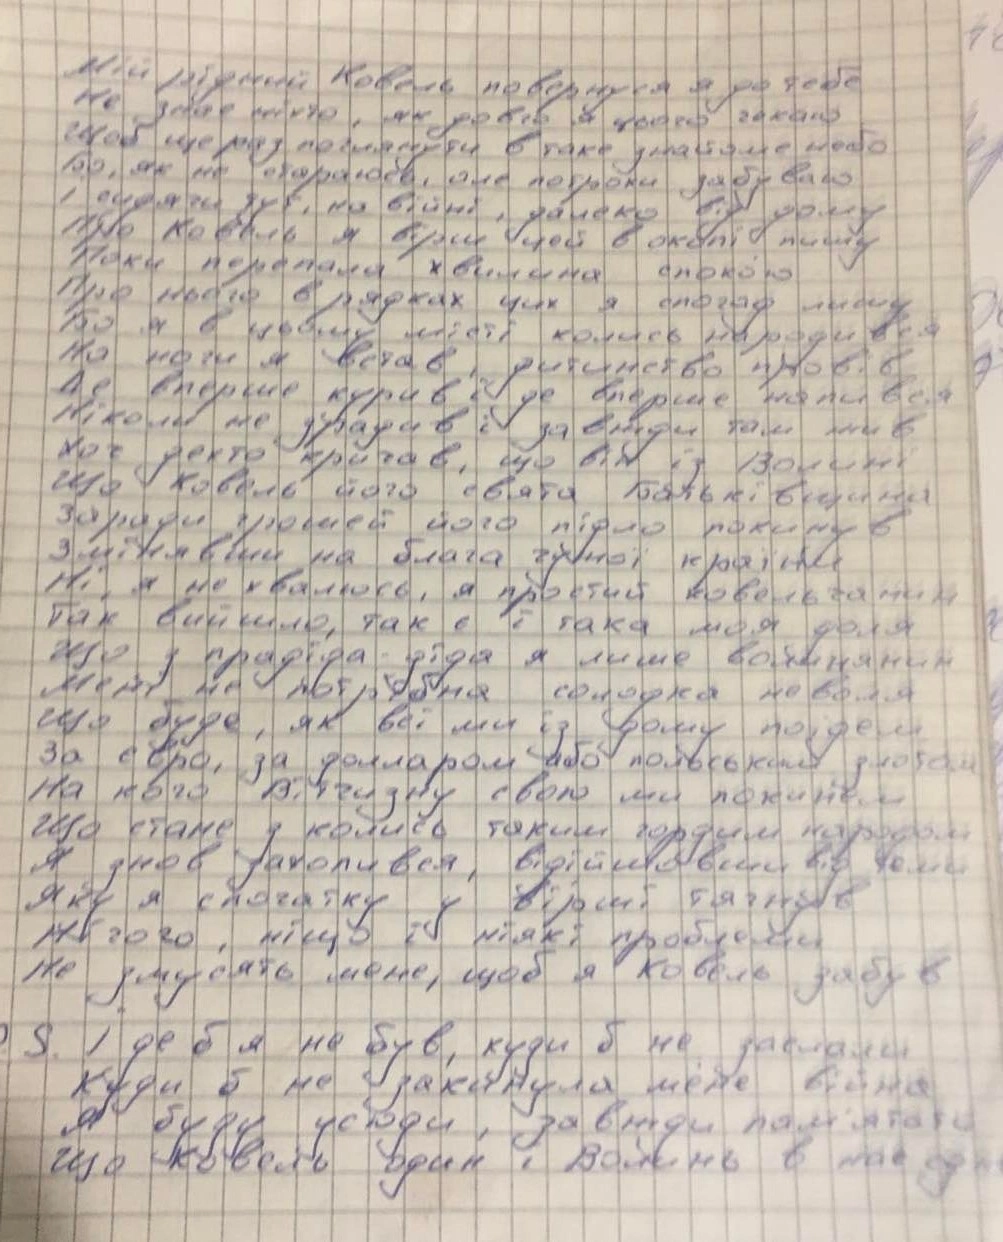 Мій рідний Ковель повернуся я до тебе
Не знає ніхто, як довго я цього чекаю
Щоб ще раз поглянути в таке знайоме небо
Бо, як не стараюсь, але потроху забуваю
І сидячи тут, на війні, далеко від дому
Про Ковель я вірш цей в окопі пишу
Поки перепала хвилина спокою
Про нього в рядках цих я спогад лишу
Бо я в цьому місті колись народився
На ноги я встав, дитинство провів
Де вперше курив і де вперше напився
Ніколи не зрадив і завжди там жив
Хоч дехто кричав, що він із Волині
Що Ковель його свята Батьківщина
Заради грошей його підло покинув
Змінявши на блага чужої країни
Ні, я не хвалюсь, я простий ковельчанин
Так вийшло, так є і така моя доля
Що з прадіда-діда я лише волинянин
Мені не потрібна солодка неволя
Що буде, як всі ми із дому поїдем
За євро, за долларом або польським злотом
На кого Вітчизну свою ми покинем
Що стане з колись таким гордим народом
Я знов захопився, відійшовши від теми
Яку я спочатку у вірші тягнув
Нічого, ніщо і ніякі проблеми
Не змусять мене, щоб я Ковель забув
P.S. І де б я не був, куди б не заслали
Куди б не закинула мене війна
Я буду усюди, завжди пам'ятати
Що Ковель один і Волинь в нас одна